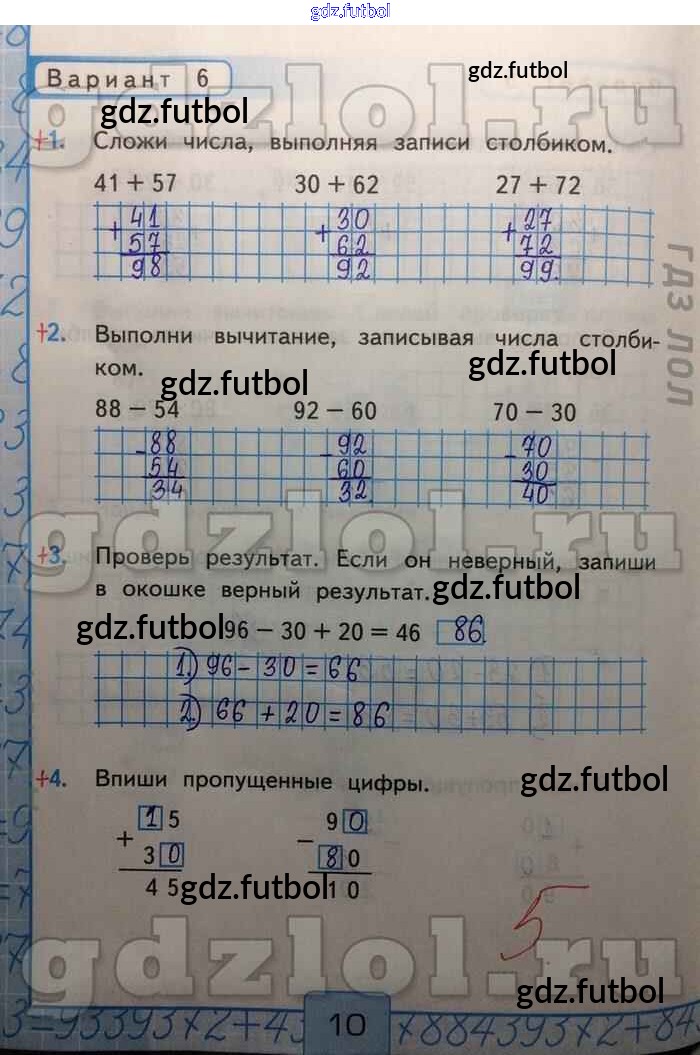 gdz.futbol
Вариант 6
gdz.futbol
gdz.futbol
gdzlol.ru
+1. Сложи числа, выполняя записи столбиком.
41 + 57 30 + 62 27 + 72
+ 41 + 30 + 27
57 62 72
98 92 99.
ГДЗ ЛОЛ
+2. Выполни вычитание, записывая числа столби-
ком.
gdz.futbol
gdz.futbol
88 − 54 92 − 60 70 − 30
- 88 - 92 - 70
54 60 30
34 32 40
gdzlol.ru
+3. Проверь результат. Если он неверный, запиши
в окошке верный результат.
gdz.futbol
gdz.futbol
96 − 30 + 20 = 46 86
1.) 96 - 30 = 66
2.) 66 + 20 = 86
+4. Впиши пропущенные цифры.
gdz.futbol
+ 15 − 90
30 80
45 10
gdz.futbol
5
gdzlol.ru
gdz.futbol
3=93393x2+43 10 x884393x2+84